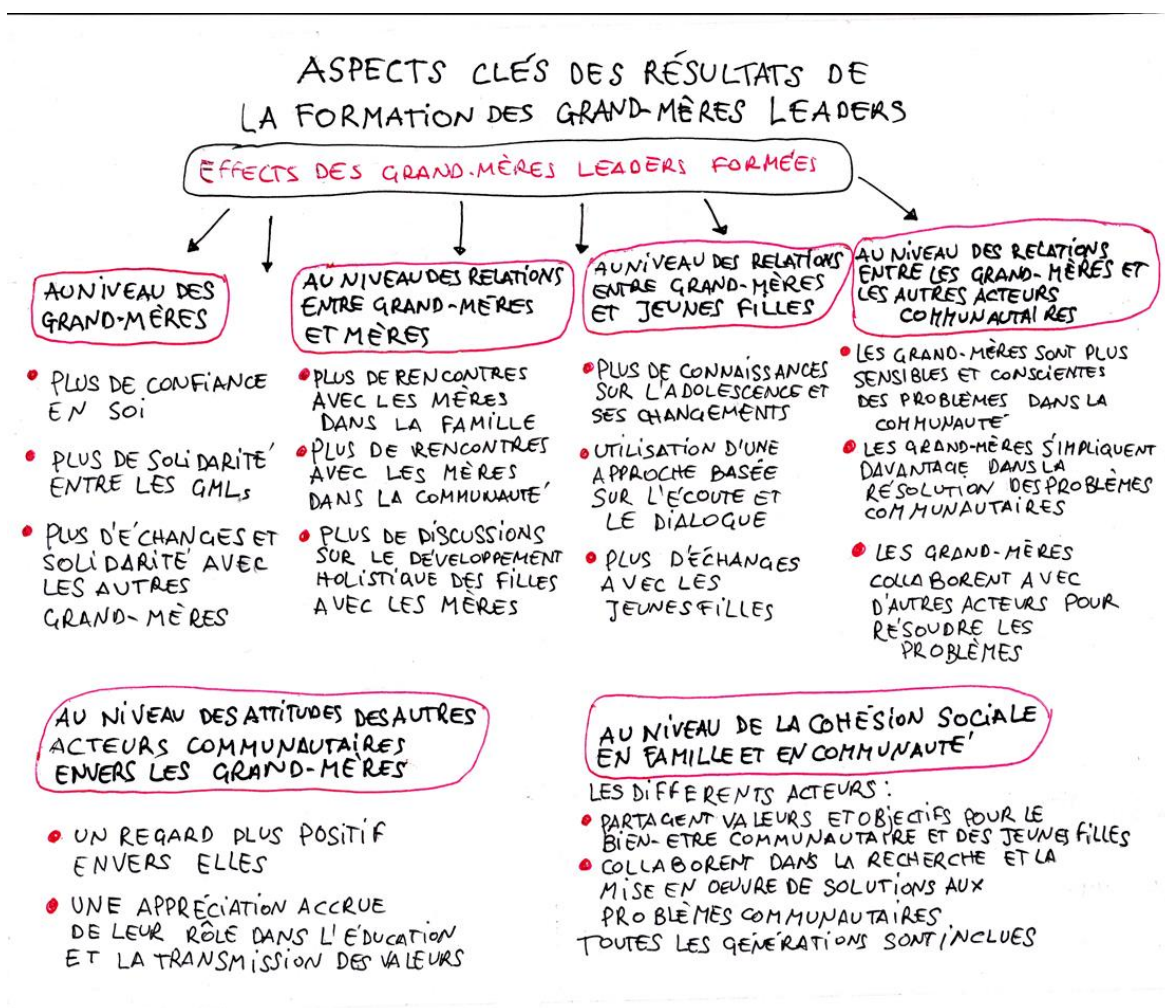 ASPECTS CLÉS DES RÉSULTATS DE
LA FORMATION DES GRAND-MÈRES LEADERS
EFFECTS DES GRAND-MÈRES LEADERS FORMÉES
AU NIVEAU DES
GRAND-MÈRES
• PLUS DE CONFIANCE
EN SOI
• PLUS DE SOLIDARITÉ
ENTRE LES GMLs
• PLUS D'ÉCHANGES ET
SOLIDARITÉ AVEC
LES AUTRES
GRAND-MÈRES
AU NIVEAU DES RELATIONS
ENTRE GRAND-MÈRES
ET MÈRES
• PLUS DE RENCONTRES
AVEC LES MÈRES
DANS LA FAMILLE
• PLUS DE RENCONTRES
AVEC LES MÈRES
DANS LA COMMUNAUTÉ
• PLUS DE DISCUSSIONS
SUR LE DÉVELOPPEMENT
HOLISTIQUE DES FILLES
AVEC LES MÈRES
AU NIVEAU DES RELATIONS
ENTRE GRAND-MÈRES
ET JEUNES FILLES
• PLUS DE CONNAISSANCES
SUR L'ADOLESCENCE ET
SES CHANGEMENTS
• UTILISATION D'UNE
APPROCHE BASÉE
SUR L'ÉCOUTE ET
LE DIALOGUE
• PLUS D'ÉCHANGES
AVEC LES
JEUNES FILLES
AU NIVEAU DES RELATIONS
ENTRE LES GRAND-MÈRES ET
LES AUTRES ACTEURS
COMMUNAUTAIRES
• LES GRAND-MÈRES SONT PLUS
SENSIBLES ET CONSCIENTES
DES PROBLÈMES DANS LA
COMMUNAUTÉ
• LES GRAND-MÈRES S'IMPLIQUENT
DAVANTAGE DANS LA
RÉSOLUTION DES PROBLÈMES
COMMUNAUTAIRES
• LES GRAND-MÈRES
COLLABORENT AVEC
D'AUTRES ACTEURS POUR
RÉSOUDRE LES
PROBLÈMES
AU NIVEAU DES ATTITUDES DES AUTRES
ACTEURS COMMUNAUTAIRES
ENVERS LES GRAND-MÈRES
• UN REGARD PLUS POSITIF
ENVERS ELLES
• UNE APPRÉCIATION ACCRUE
DE LEUR RÔLE DANS L'ÉDUCATION
ET LA TRANSMISSION DES VALEURS
AU NIVEAU DE LA COHÉSION SOCIALE
EN FAMILLE ET EN COMMUNAUTÉ
LES DIFFERENTS ACTEURS:
• PARTAGENT VALEURS ET OBJECTIFS POUR LE
BIEN-ETRE COMMUNAUTAIRE ET DES JEUNES FILLES
• COLLABORENT DANS LA RECHERCHE ET LA
MISE EN OEUVRE DE SOLUTIONS AUX
PROBLÈMES COMMUNAUTAIRES
TOUTES LES GÉNÉRATIONS SONT INCLUES